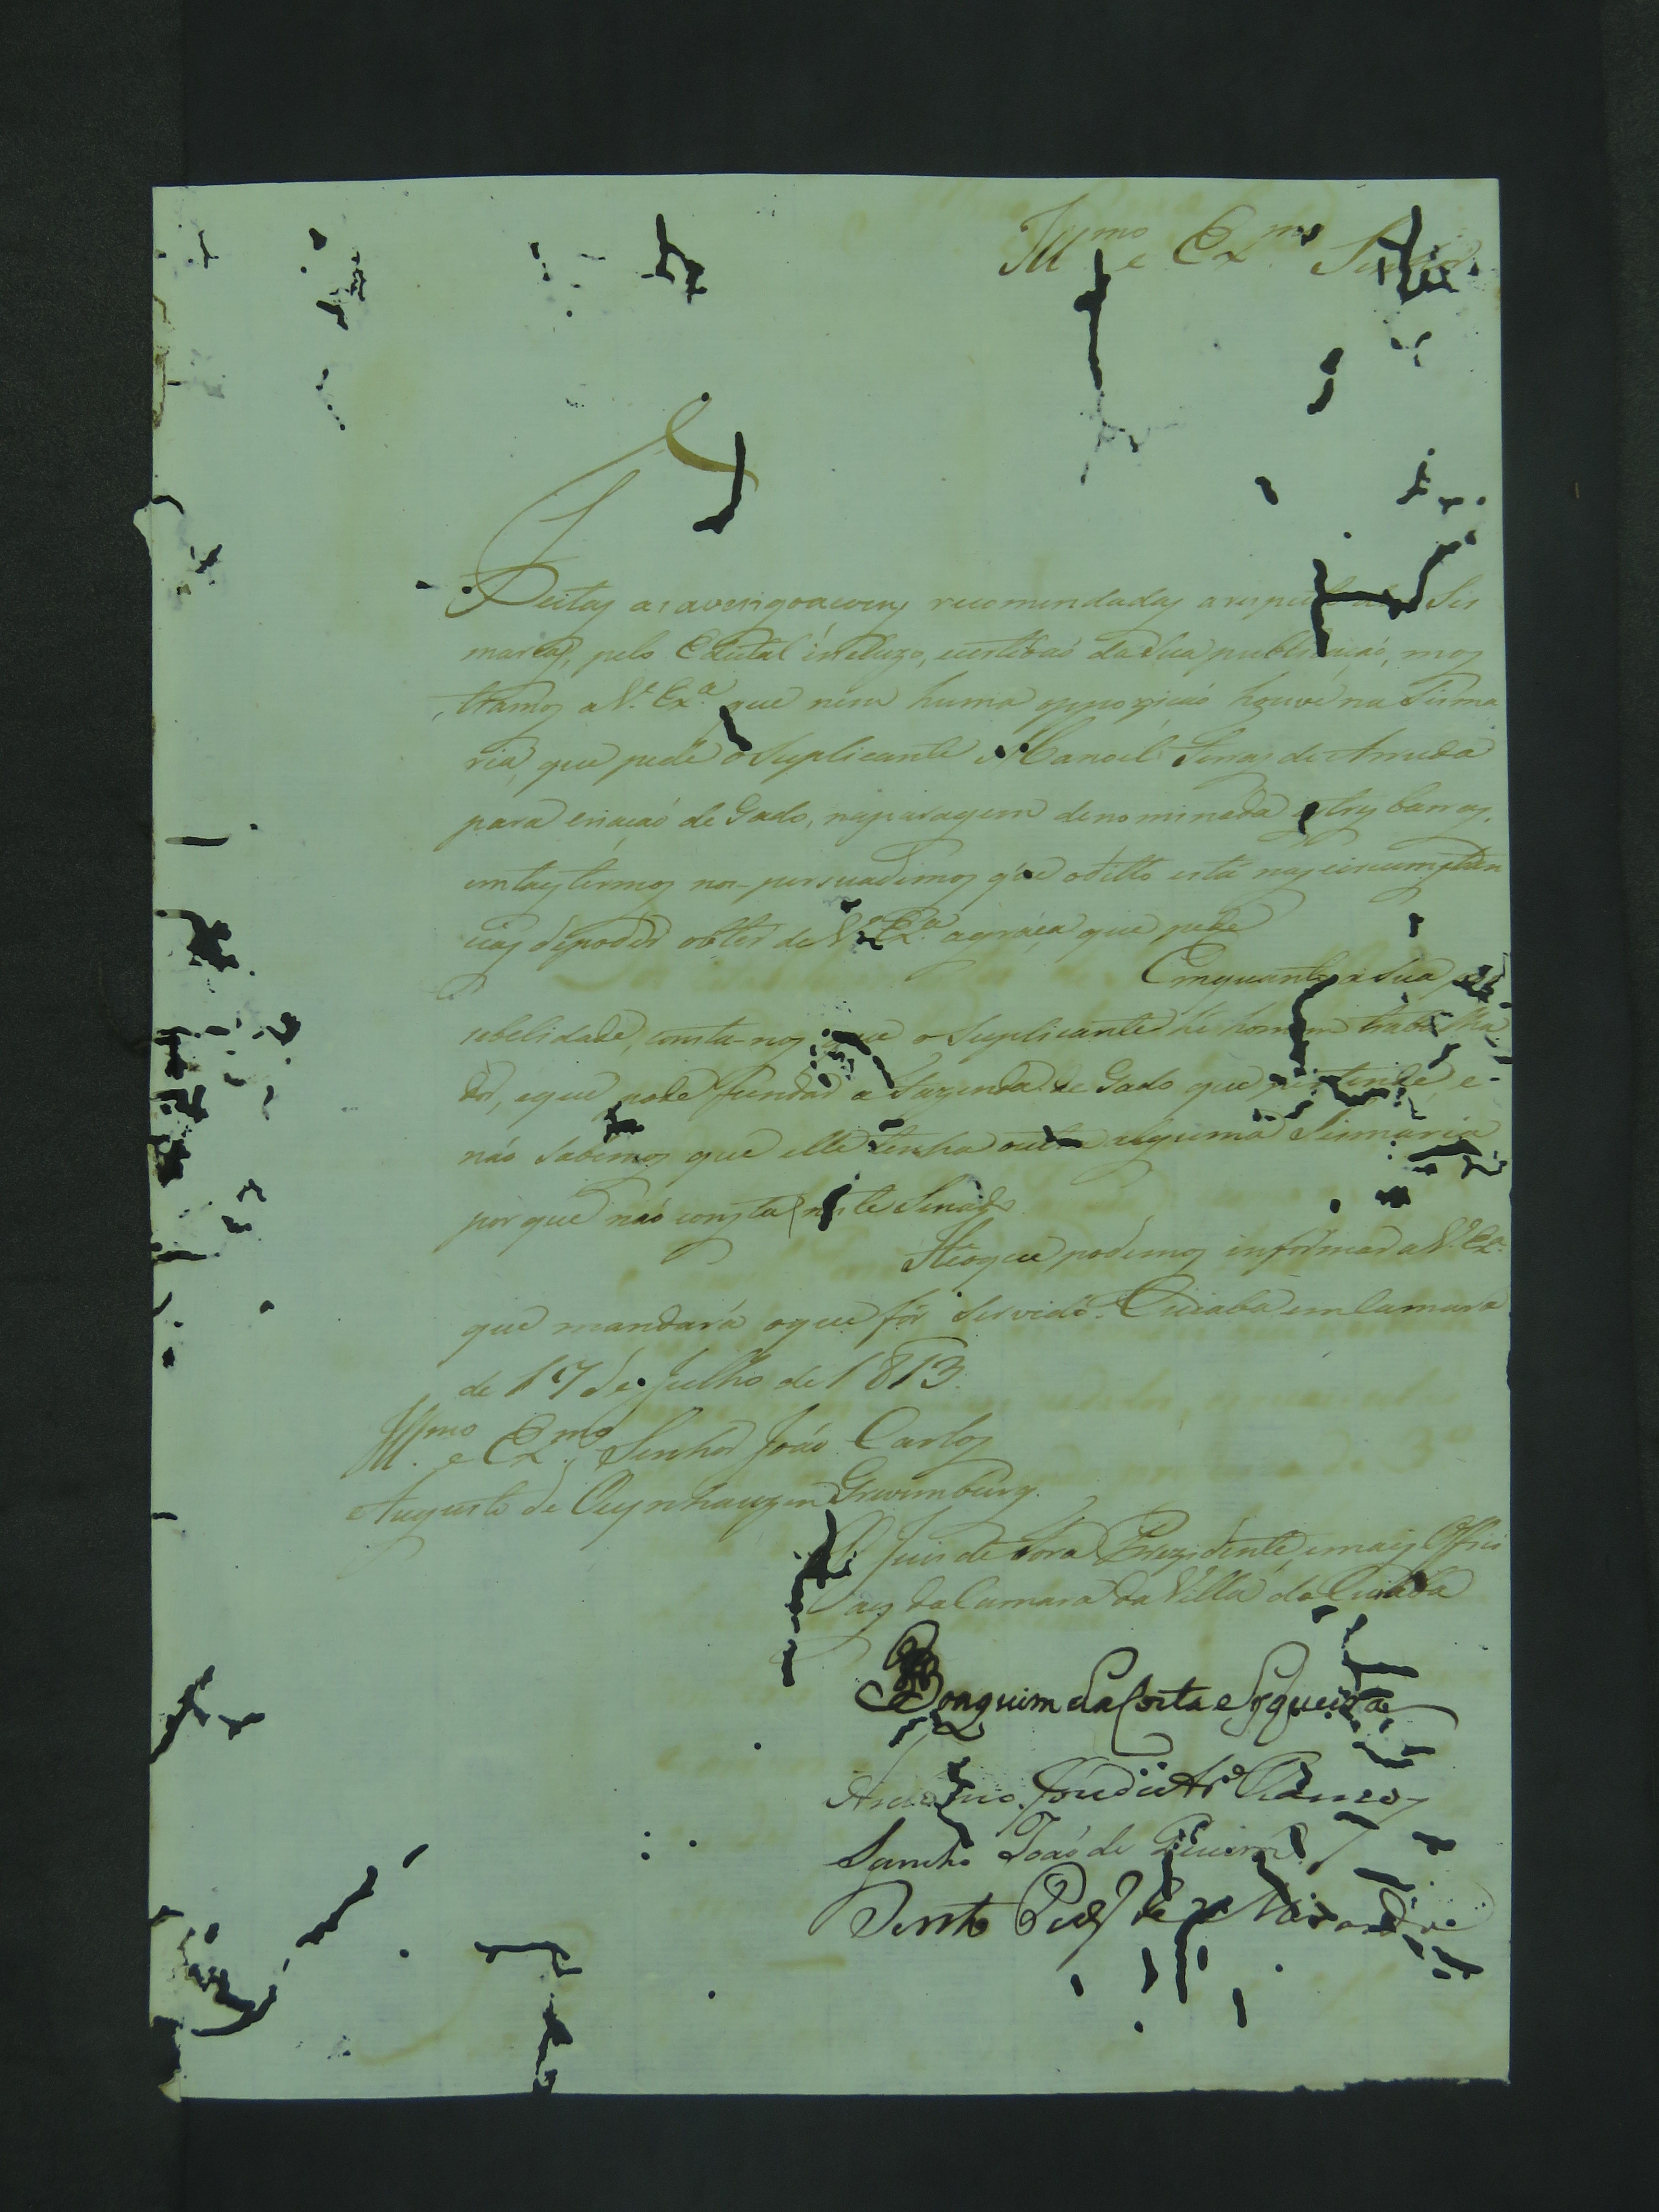 Ill.mo e Ex.mo Senhor
Feitas as averigoacoens recomendadas a respeito da Sis
marias, pelo Edital incluzo, certidaó da Sua publicaçaó, mos
tramos a V.ª Ex.ª que nem huma oppoziçaó houve na Sisma
ria, que pede o Suplicante Manoel de Arruda
para criaçaó de Gado, na paragem denominada as tres barras,
em taes termos nos-persuadimos que o ditto está nas circumstan
cias de poder obter de V.ª Ex.ª a graça que pede
Emquanto a Sua pos
sebelidade, consta-nos que o Suplicante hé homem trabalha
dor, e que pode fundar a Fazenda de Gado que pertende, e
não Sabemos que elle tenha outra alguma Sismaria
por que naó consta neste Senado
He o que podemos informar a V.ª Ex.ª
que mandará o que fôr Servido. Cuiaba em Camara
de 17 de Julho de 1813.
Ill.mo e Ex.mo Senhor João Carlos
Augusto de Oeynhauzen Grevemburg.
O Juis de Fora Prezidente, e mais Offici
aes da Camara da Villa do Cuiaba
Joaquim da Costa e Syqueira
Antonio Ramos
Sancho João de
Bento de Miranda